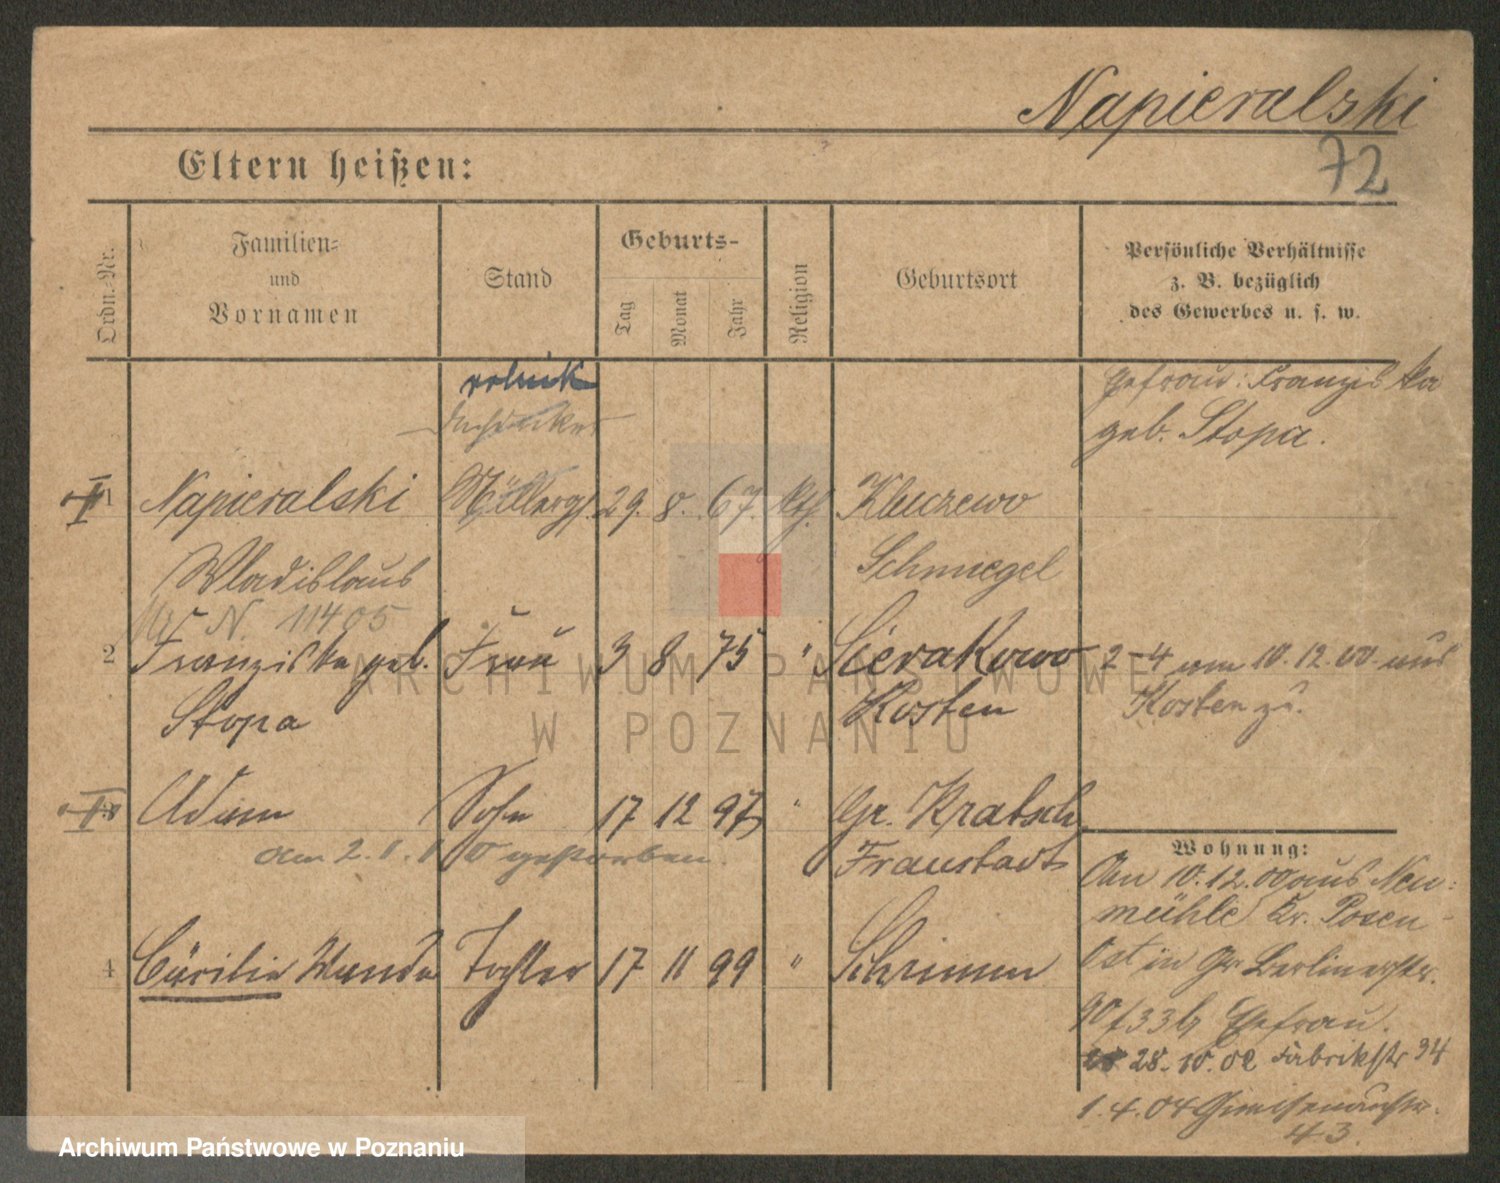 Napieralski
72
Eltern heißen:
Ordn.-Nr.
Familien-
und
Vornamen
Stand
Geburts-
Tag
Monat
Jahr
Religion
Geburtsort
Persönliche Verhältnisse
z. B. bezüglich
des Gewerbes u. s. w.
rolnik
Ehefrau: Franziska
geb. Stopa.
1 Napieralski Müllerges. 29. 8. 67. kth. Kluczewo
Wladislaus Schmiegel
N. 11405
2 Franziska geb. Frau 3 8 75 " Sierakowo 2-4 am 10.12.00 aus
Stopa Kosten Kosten zu.
3 Adam Sohn 17 12 97 " Gr. Kratsch
am 2.1.10 gestorben. Fraustadt
4 Cäcilie Wanda Tochter 17 11 99 " Schrimm
Wohnung:
Am 10.12.00 aus Neu-
mühle Kr. Posen-
Ost in Gr Berlinerstr.
90/33 b Ehefrau.
28.10.02 Fabrikstr 34
1.4.04 Gneisenaustr.
43.
ARCHIWUM PAŃSTWOWE
W POZNANIU
Archiwum Państwowe w Poznaniu